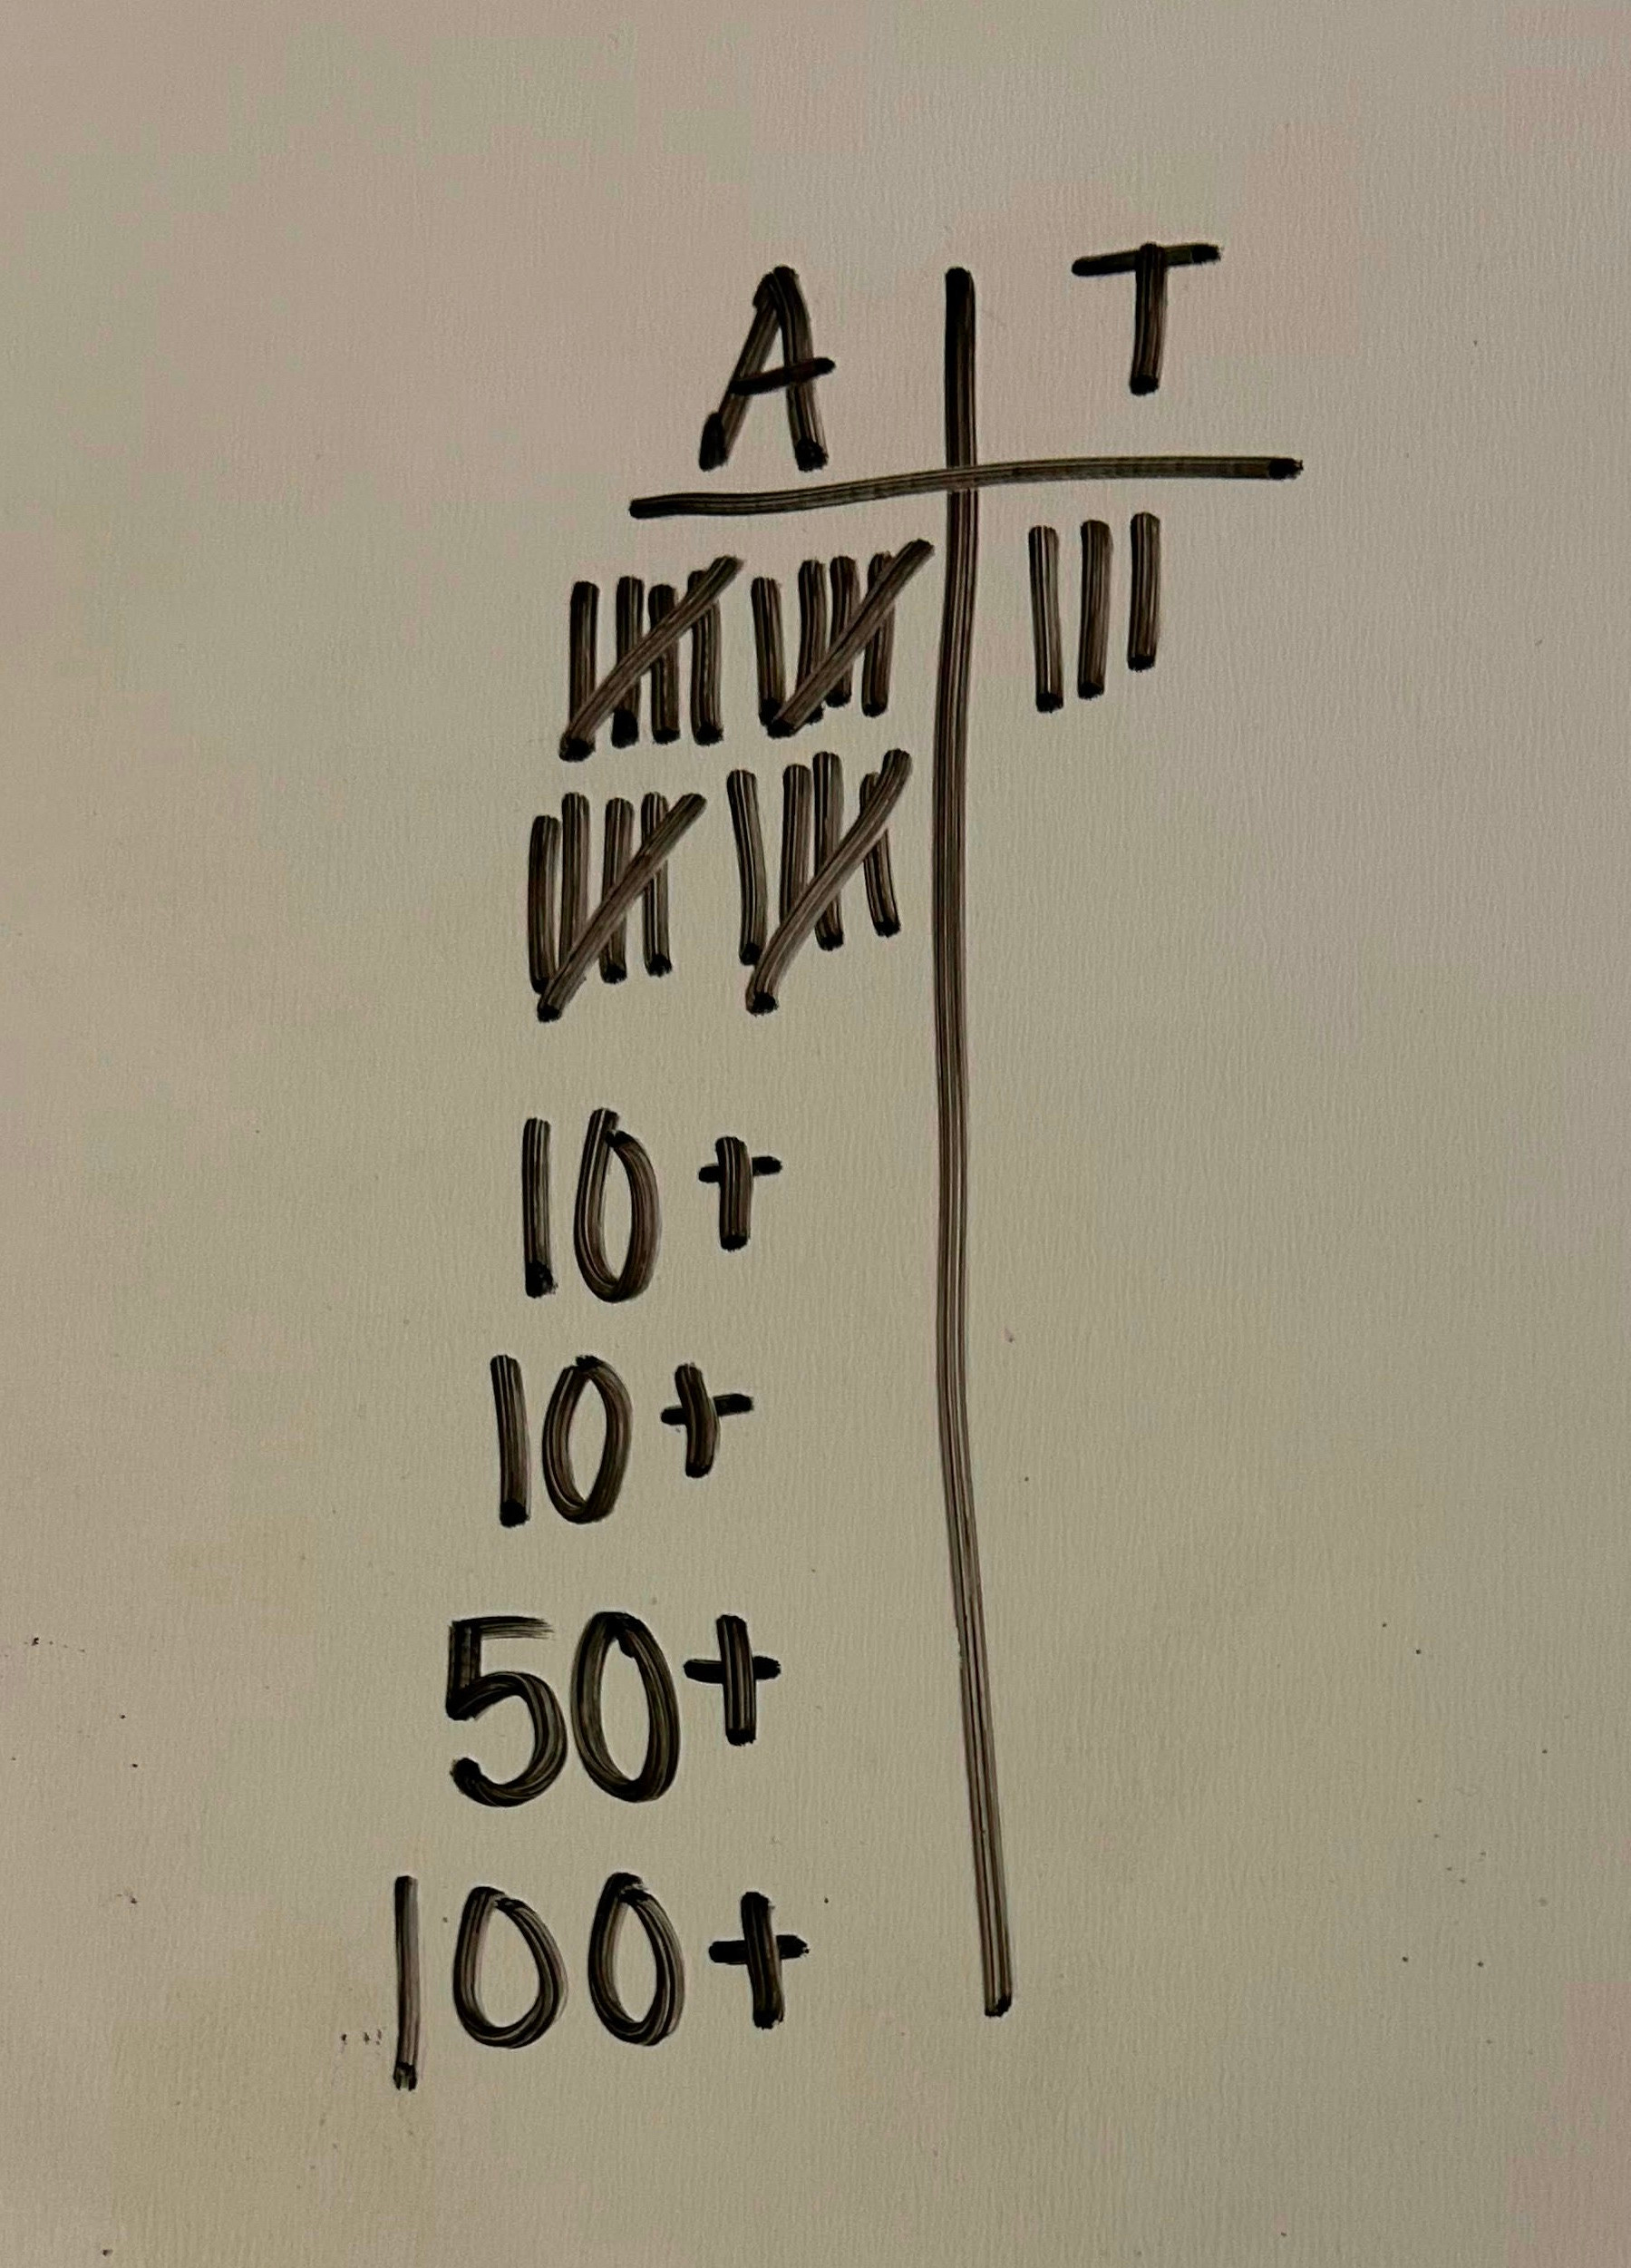 A T
𝍸 𝍸 |||
𝍸 𝍸
10+
10+
50+
100+